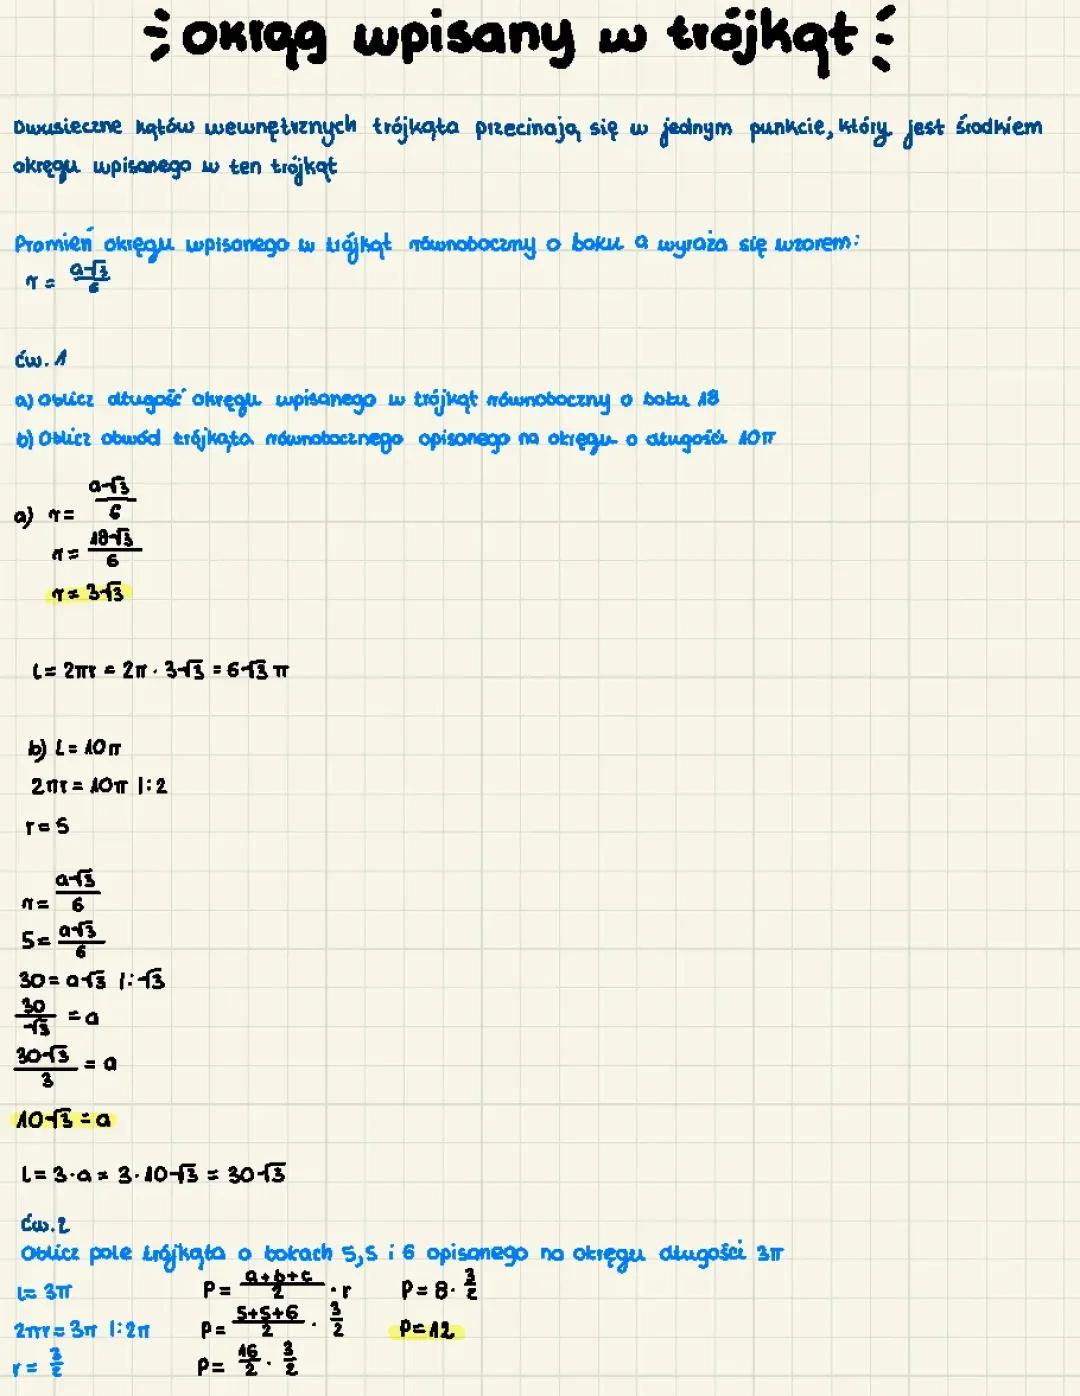 okrąg wpisany w trójkąt
Dwusieczne kątów wewnętrznych trójkąta przecinają się w jednym punkcie, który jest środkiem
okręgu wpisanego w ten trójkąt
Promień okręgu wpisanego w trójkąt równoboczny o boku a wyraża się wzorem:
r = a√3/6
ćw. 1
a) Oblicz długość okręgu wpisanego w trójkąt równoboczny o boku 18
b) Oblicz obwód trójkąta równobocznego opisanego na okręgu o długości 10π
a) r = a√3/6
r = 18√3/6
r = 3√3
L = 2πr = 2π · 3√3 = 6√3 π
b) L = 10π
2πr = 10π |:2
r = 5
r = a√3/6
5 = a√3/6
30 = a√3 |:√3
30/√3 = a
30√3/3 = a
10√3 = a
L = 3·a = 3·10√3 = 30√3
ćw. 2
Oblicz pole trójkąta o bokach 5,5 i 6 opisanego na okręgu długości 3π
L = 3π
2πr = 3π |:2π
r = 3/2
P = a+b+c/2 · r
P = 5+5+6/2 · 3/2
P = 16/2 · 3/2
P = 8 · 3/2
P = 12